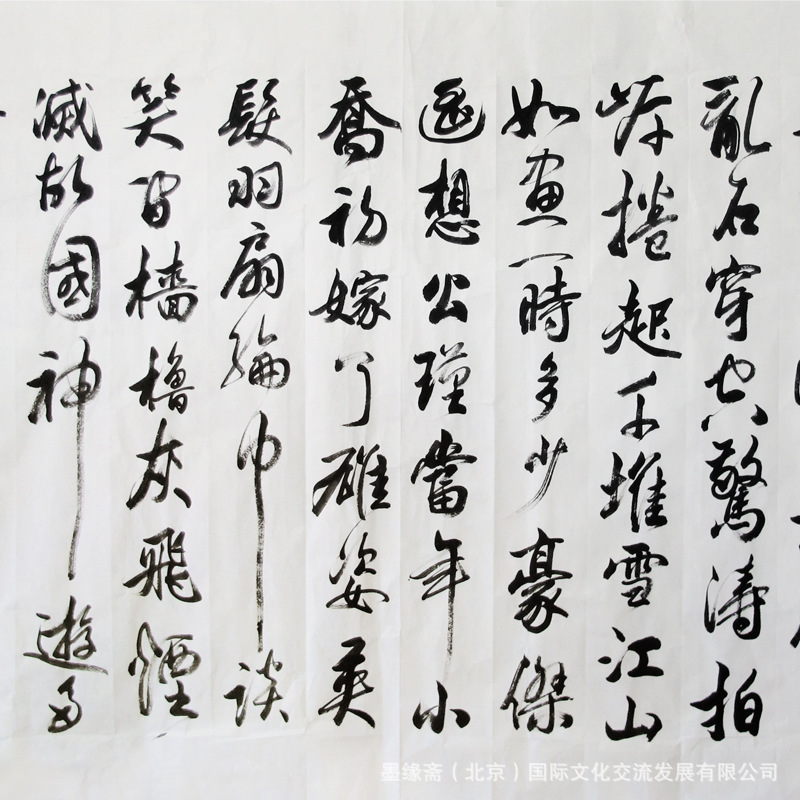 亂石穿空驚濤拍
岸捲起千堆雪江山
如畫一時多少豪傑
遙想公瑾當年小
喬初嫁了雄姿英
髮羽扇綸巾談
笑間檣櫓灰飛煙
滅故國神遊多
墨缘斋（北京）国际文化交流发展有限公司